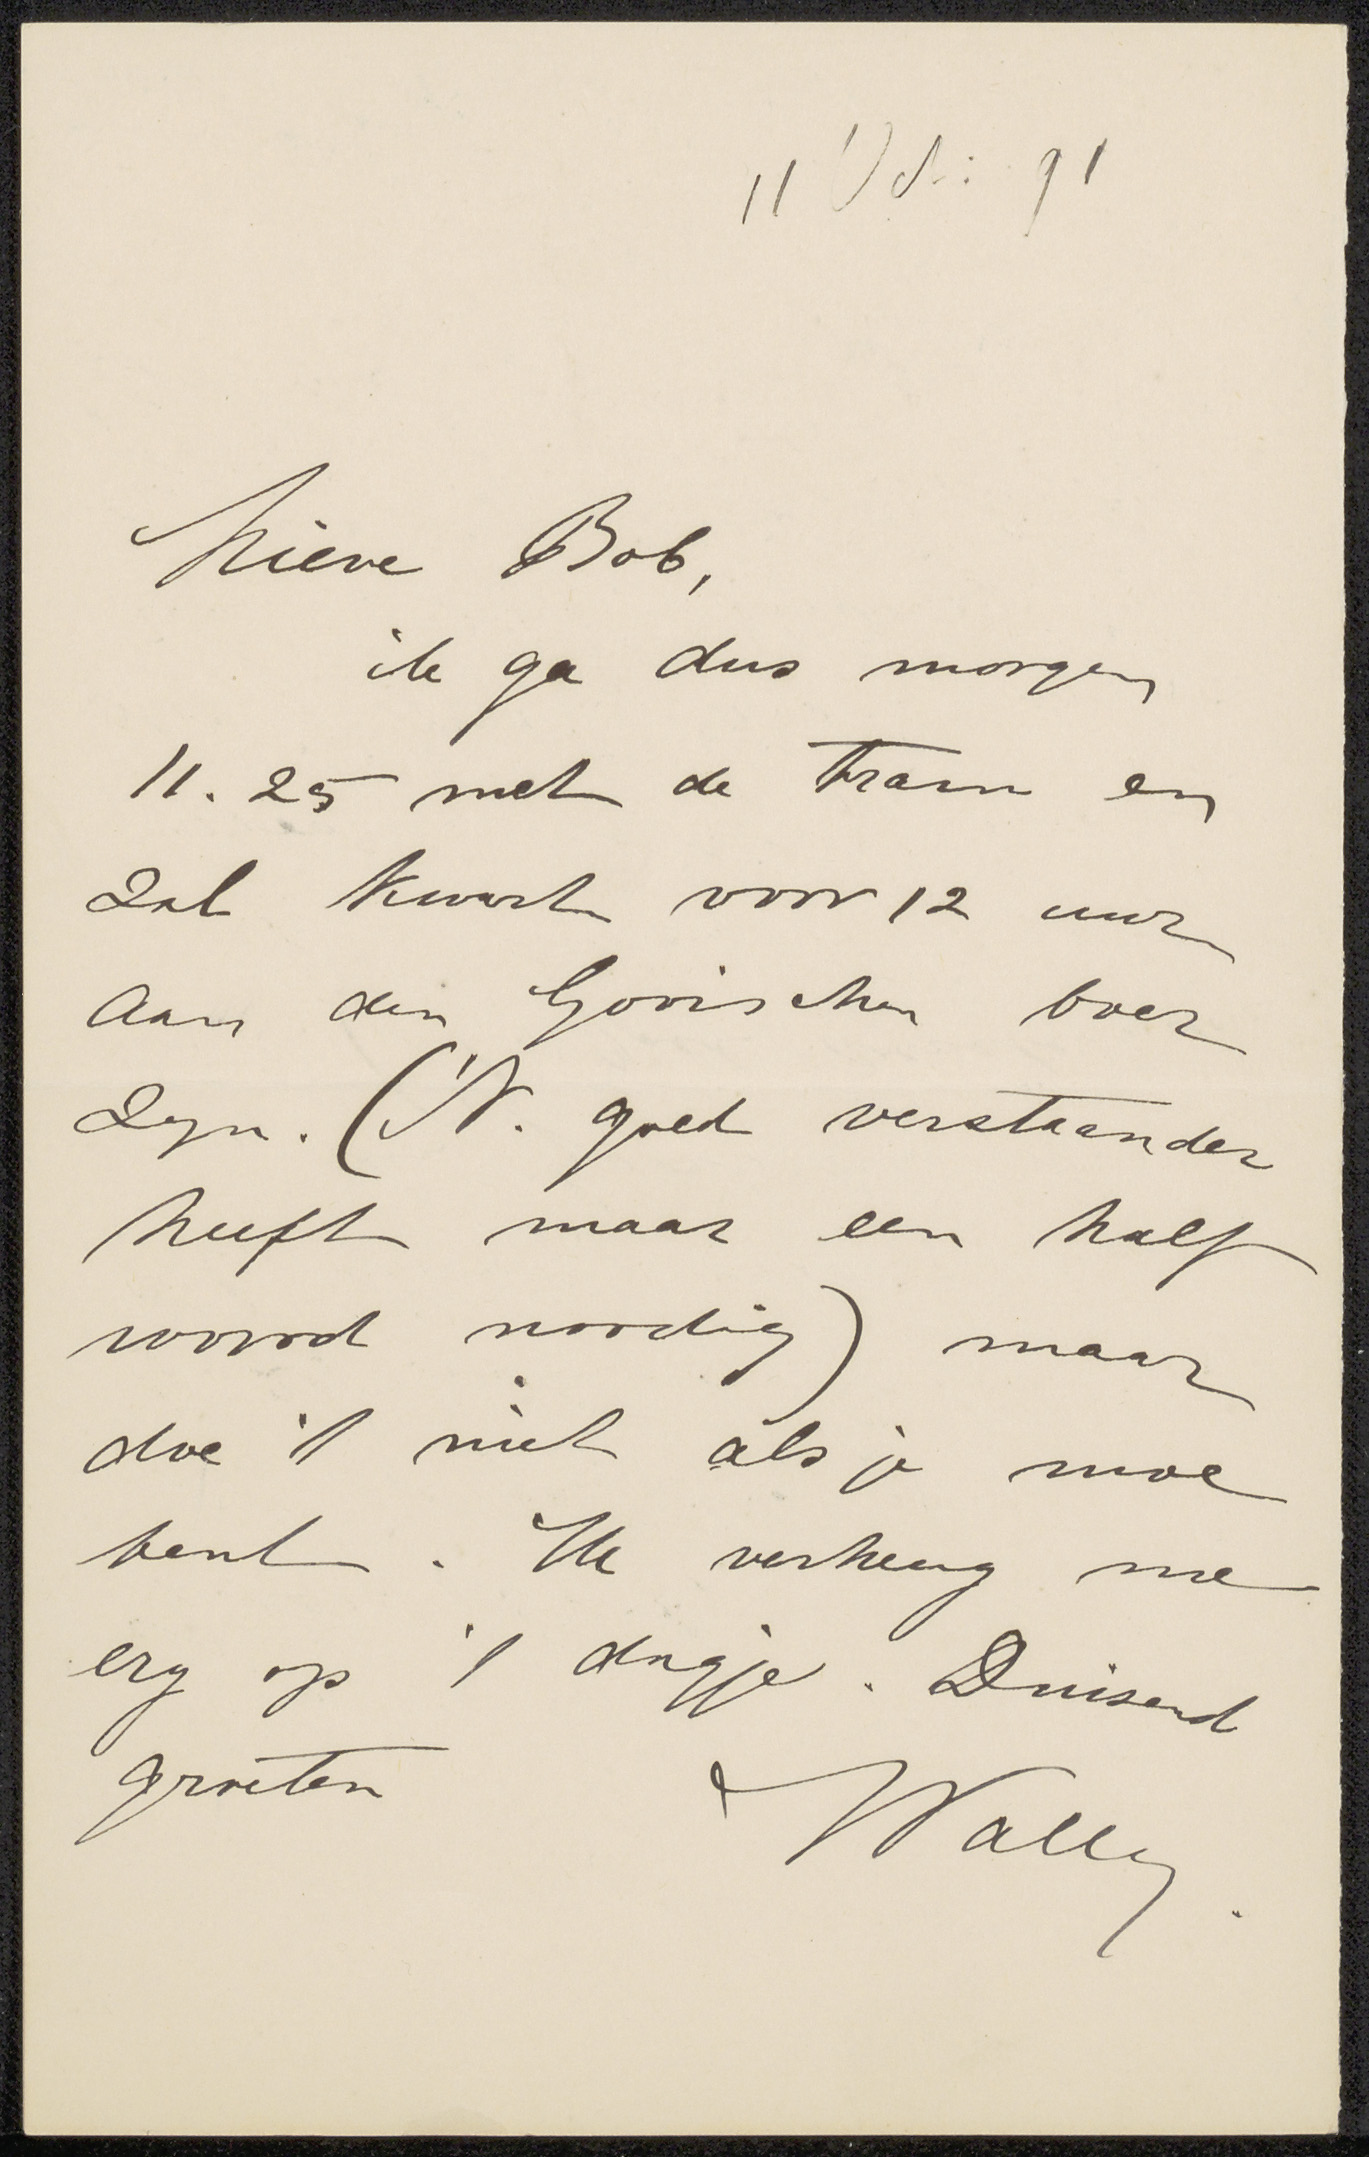 11 Oct: 91
Lieve Bob,
ik ga dus morgen
11.25 met de tram en
zal kwart voor 12 uur
aan den Gooischen boer
zyn. ('N. goed verstaander
heeft maar een half
woord noodig) maar
doe 't niet als je moe
bent. Ik verheug me
erg op 't dagje. Duizend
groeten
Wally.